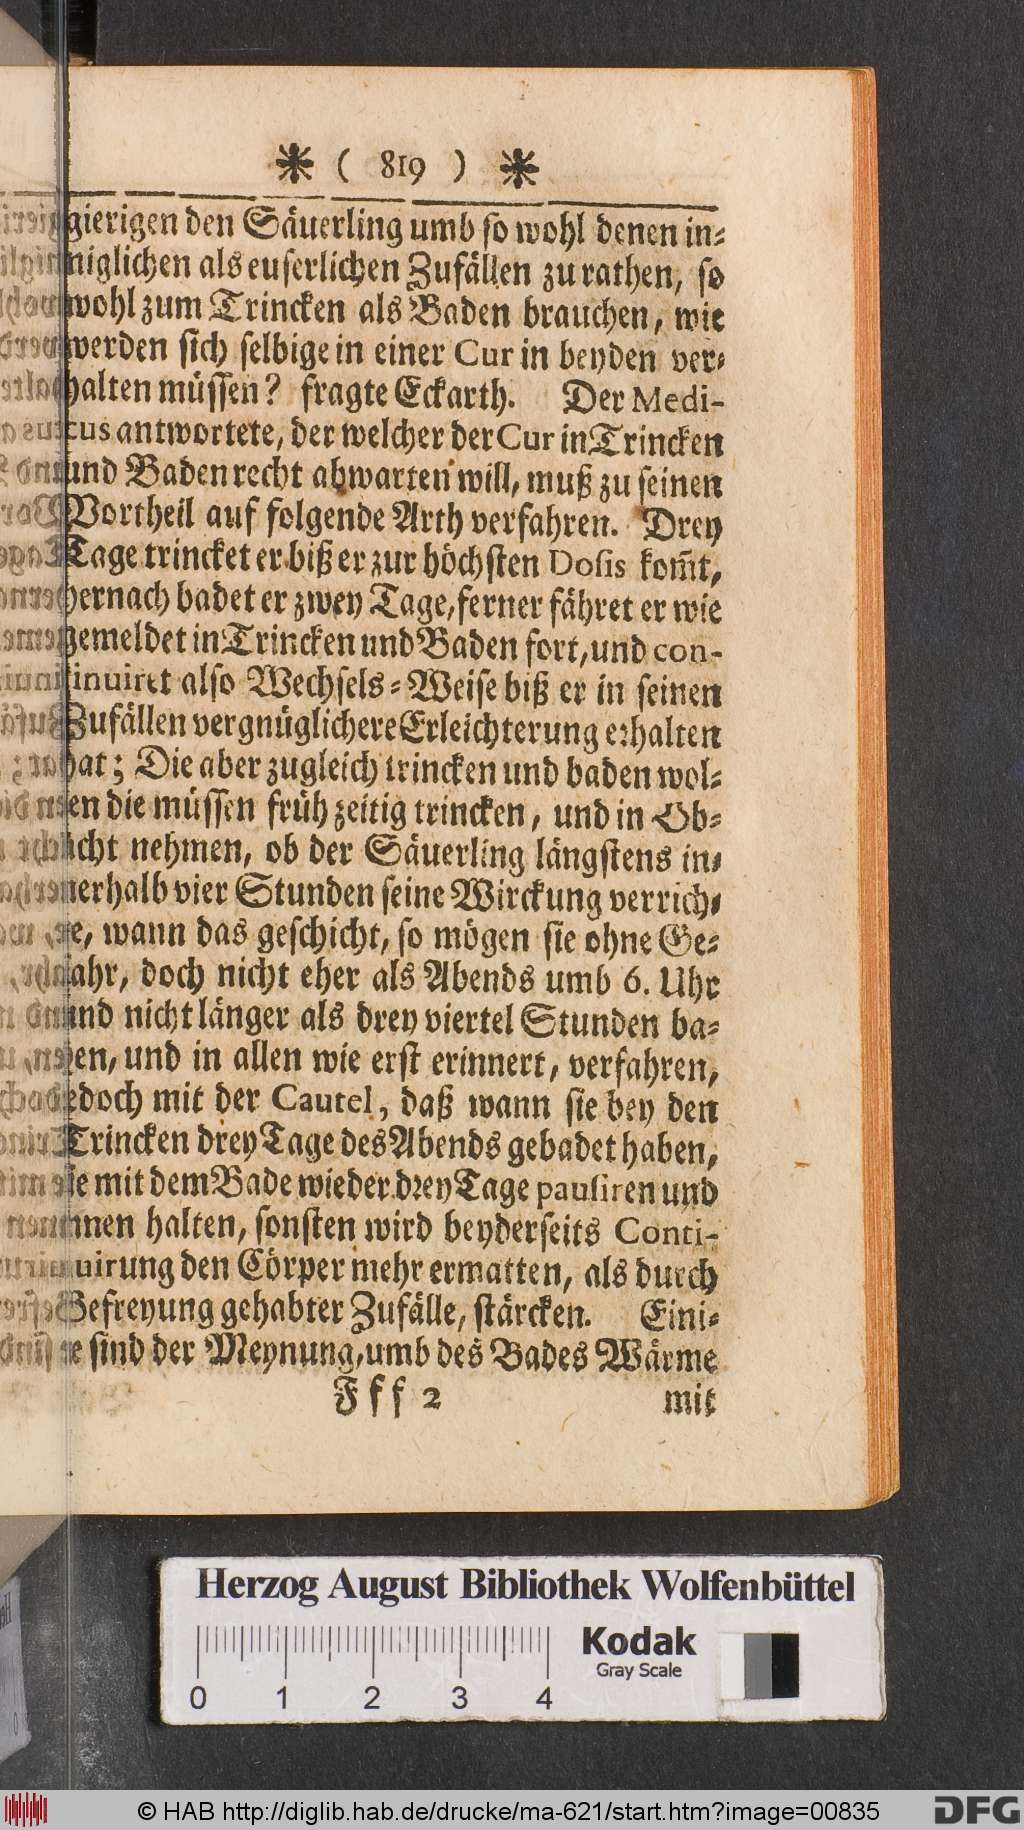 * ( 819 ) *
gierigen den Säuerling umb so wohl denen in-
niglichen als euserlichen Zufällen zu rathen, so
wohl zum Trincken als Baden brauchen, wie
werden sich selbige in einer Cur in beyden ver-
halten müssen? fragte Eckarth. Der Medi-
cus antwortete, der welcher der Cur in Trincken
und Baden recht abwarten will, muß zu seinen
Vortheil auf folgende Arth verfahren. Drey
Tage trincket er biß er zur höchsten Dosis kom̃t,
hernach badet er zwey Tage, ferner fähret er wie
gemeldet in Trincken und Baden fort, und con-
tinuiret also Wechsels-Weise biß er in seinen
Zufällen vergnüglichere Erleichterung erhalten
hat; Die aber zugleich trincken und baden wol-
len die müssen früh zeitig trincken, und in Ob-
acht nehmen, ob der Säuerling längstens in-
nerhalb vier Stunden seine Wirckung verrich-
te, wann das geschicht, so mögen sie ohne Ge-
fahr, doch nicht eher als Abends umb 6. Uhr
und nicht länger als drey viertel Stunden ba-
den, und in allen wie erst erinnert, verfahren,
jedoch mit der Cautel, daß wann sie bey den
Trincken drey Tage des Abends gebadet haben,
sie mit dem Bade wieder drey Tage pausiren und
innen halten, sonsten wird beyderseits Conti-
nuirung den Cörper mehr ermatten, als durch
Befreyung gehabter Zufälle, stärcken. Eini-
ge sind der Meynung, umb des Bades Wärme
Fff 2 mit
Herzog August Bibliothek Wolfenbüttel
Kodak
Gray Scale
0 1 2 3 4
© HAB http://diglib.hab.de/drucke/ma-621/start.htm?image=00835
DFG